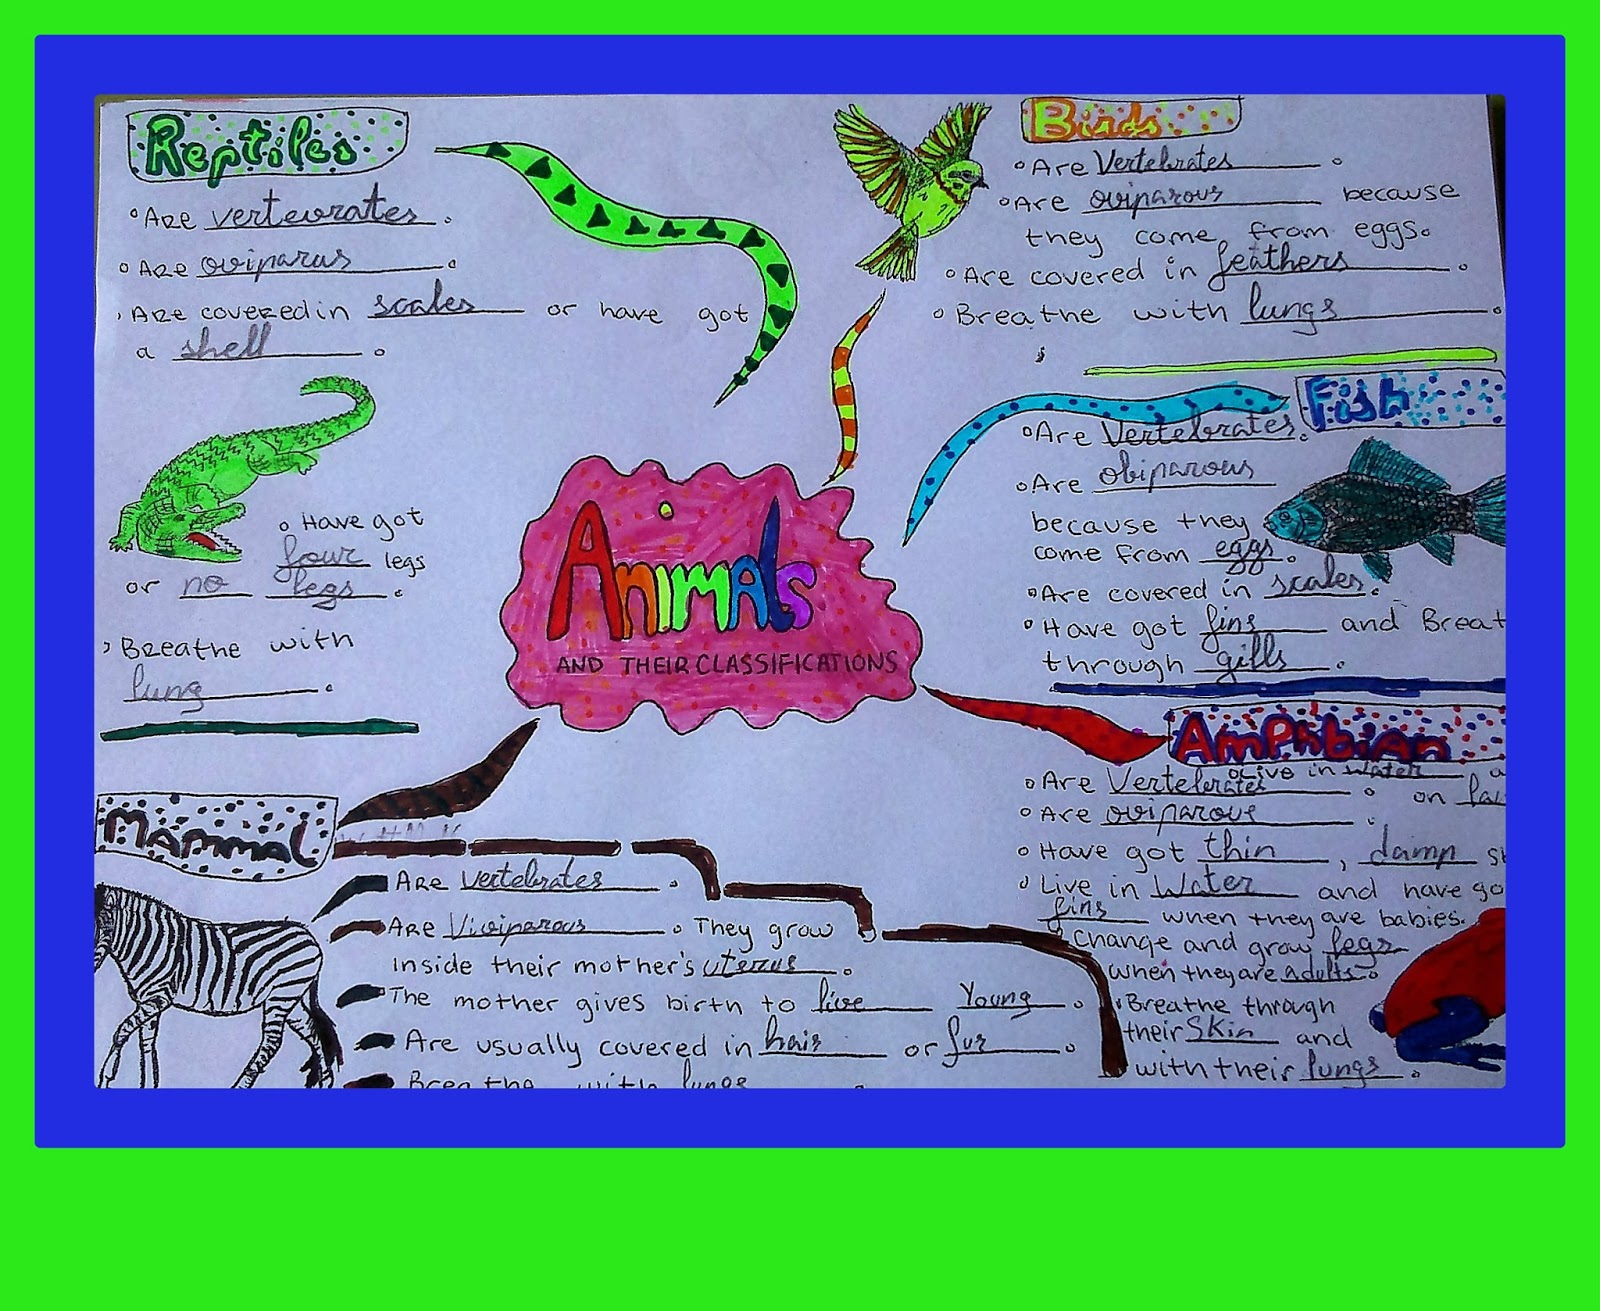 Reptiles
Are vertevrates.
Are oviparus.
Are covered in scales or have got
a shell.
Have got
four legs
or no legs.
Breathe with
lung.
Birds
Are Vertebrates.
Are oviparous because
they come from eggs.
Are covered in feathers.
Breathe with lungs.
Fish
Are Vertebrates.
Are obiparous
because they
come from eggs.
Are covered in scales.
Have got fins and Breat
through gills.
Animals
AND THEIR CLASSIFICATIONS
Amphibian
Live in water
Are Vertebrates. on
Are oviparous.
Have got thin, damp
Live in Water and have go
fins when they are babies.
Change and grow legs
when they are adults.
Breathe through
their Skin and
with their lungs.
Mammal
Are vertebrates.
Are Viviparous. They grow
inside their mother's uterus.
The mother gives birth to live Young.
Are usually covered in hair or fur.
Breathe with lungs.